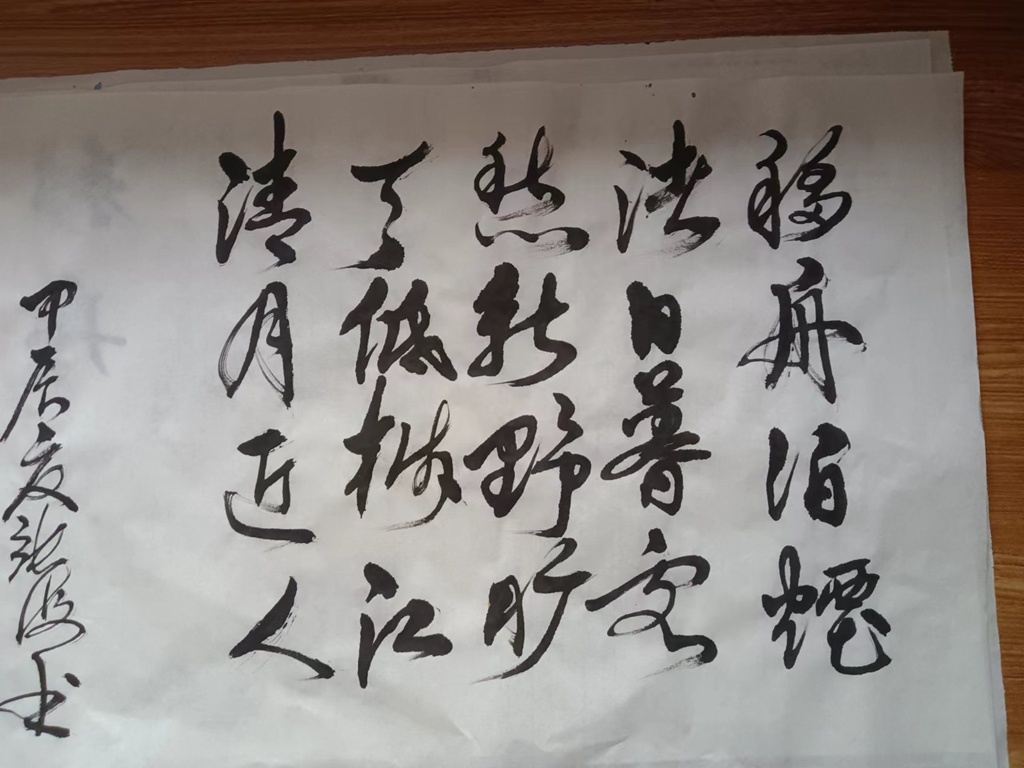 移舟泊煙
渚日暮客
愁新野旷
天低树江
清月近人
甲辰夏张波书